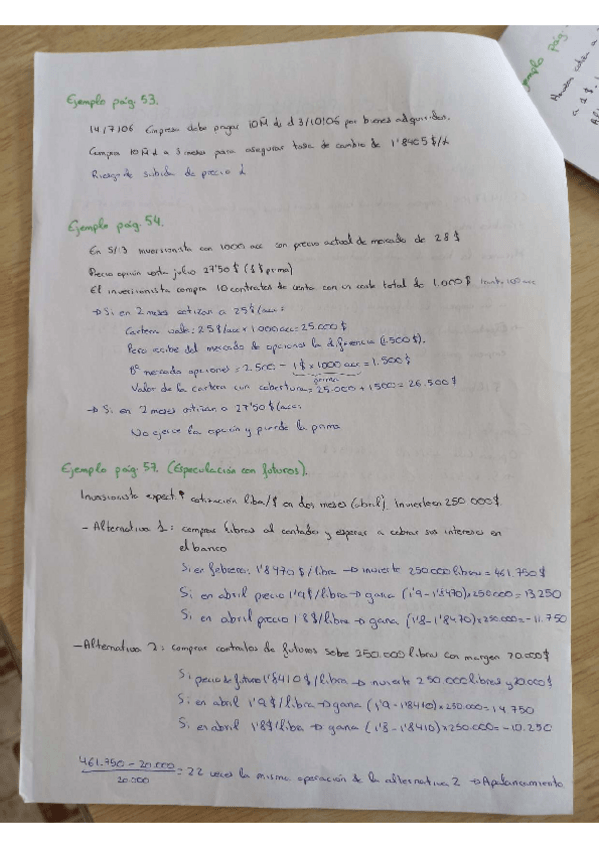 Ejemplo pág. 53.
14/7/06 Empresa debe pagar 10M de £ 3/10/06 por bienes adquiridos.
Compra 10M £ a 3 meses para asegurar tasa de cambio de 1'8405 $/£
Riesgo de subida de precio £
Ejemplo pág. 54.
En 5/13 inversionista con 1000 acc con precio actual de mercado de 28 $
Precio opción venta julio 27'50 $ (1 $ prima)
El inversionista compra 10 contratos de venta con un coste total de 1.000 $ 100 acc
→ Si en 2 meses cotizan a 25 $/acc:
Cartera vale: 25 $/acc x 1000 acc = 25.000 $
Pero recibe del mercado de opciones la diferencia (1.500 $).
Bº mercado opciones = 2.500 - 1 $ x 1000 acc = 1.500 $
prima
Valor de la cartera con cobertura = 25.000 + 1500 = 26.500 $
→ Si en 2 meses cotizan a 27'50 $/acc:
No ejerce la opción y pierde la prima
Ejemplo pág. 57. (Especulación con futuros).
Inversionista expect. ↑ cotización libra/$ en dos meses (abril). Invierte en 250.000 $.
- Alternativa 1: comprar libras al contado y esperar a cobrar sus intereses en
el banco
Si en febrero: 1'8470 $/libra → invierte 250.000 libras = 461.750 $
Si en abril precio 1'9 $/libra → gana (1'9 - 1'8470) x 250.000 = 13250
Si en abril precio 1'8 $/libra → gana (1'8 - 1'8470) x 250.000 = - 11.750
- Alternativa 2: comprar contratos de futuros sobre 250.000 libras con margen 20.000 $
Si precio de futuro 1'8410 $/libra → invierte 250.000 libras y 20.000 $
Si en abril 1'9 $/libra → gana (1'9 - 1'8410) x 250.000 = 14.750
Si en abril 1'8 $/libra → gana (1'8 - 1'8410) x 250.000 = - 10.250
461.750 - 20.000 / 20.000 = 22 veces la misma operación de la alternativa 2 → Apalancamiento